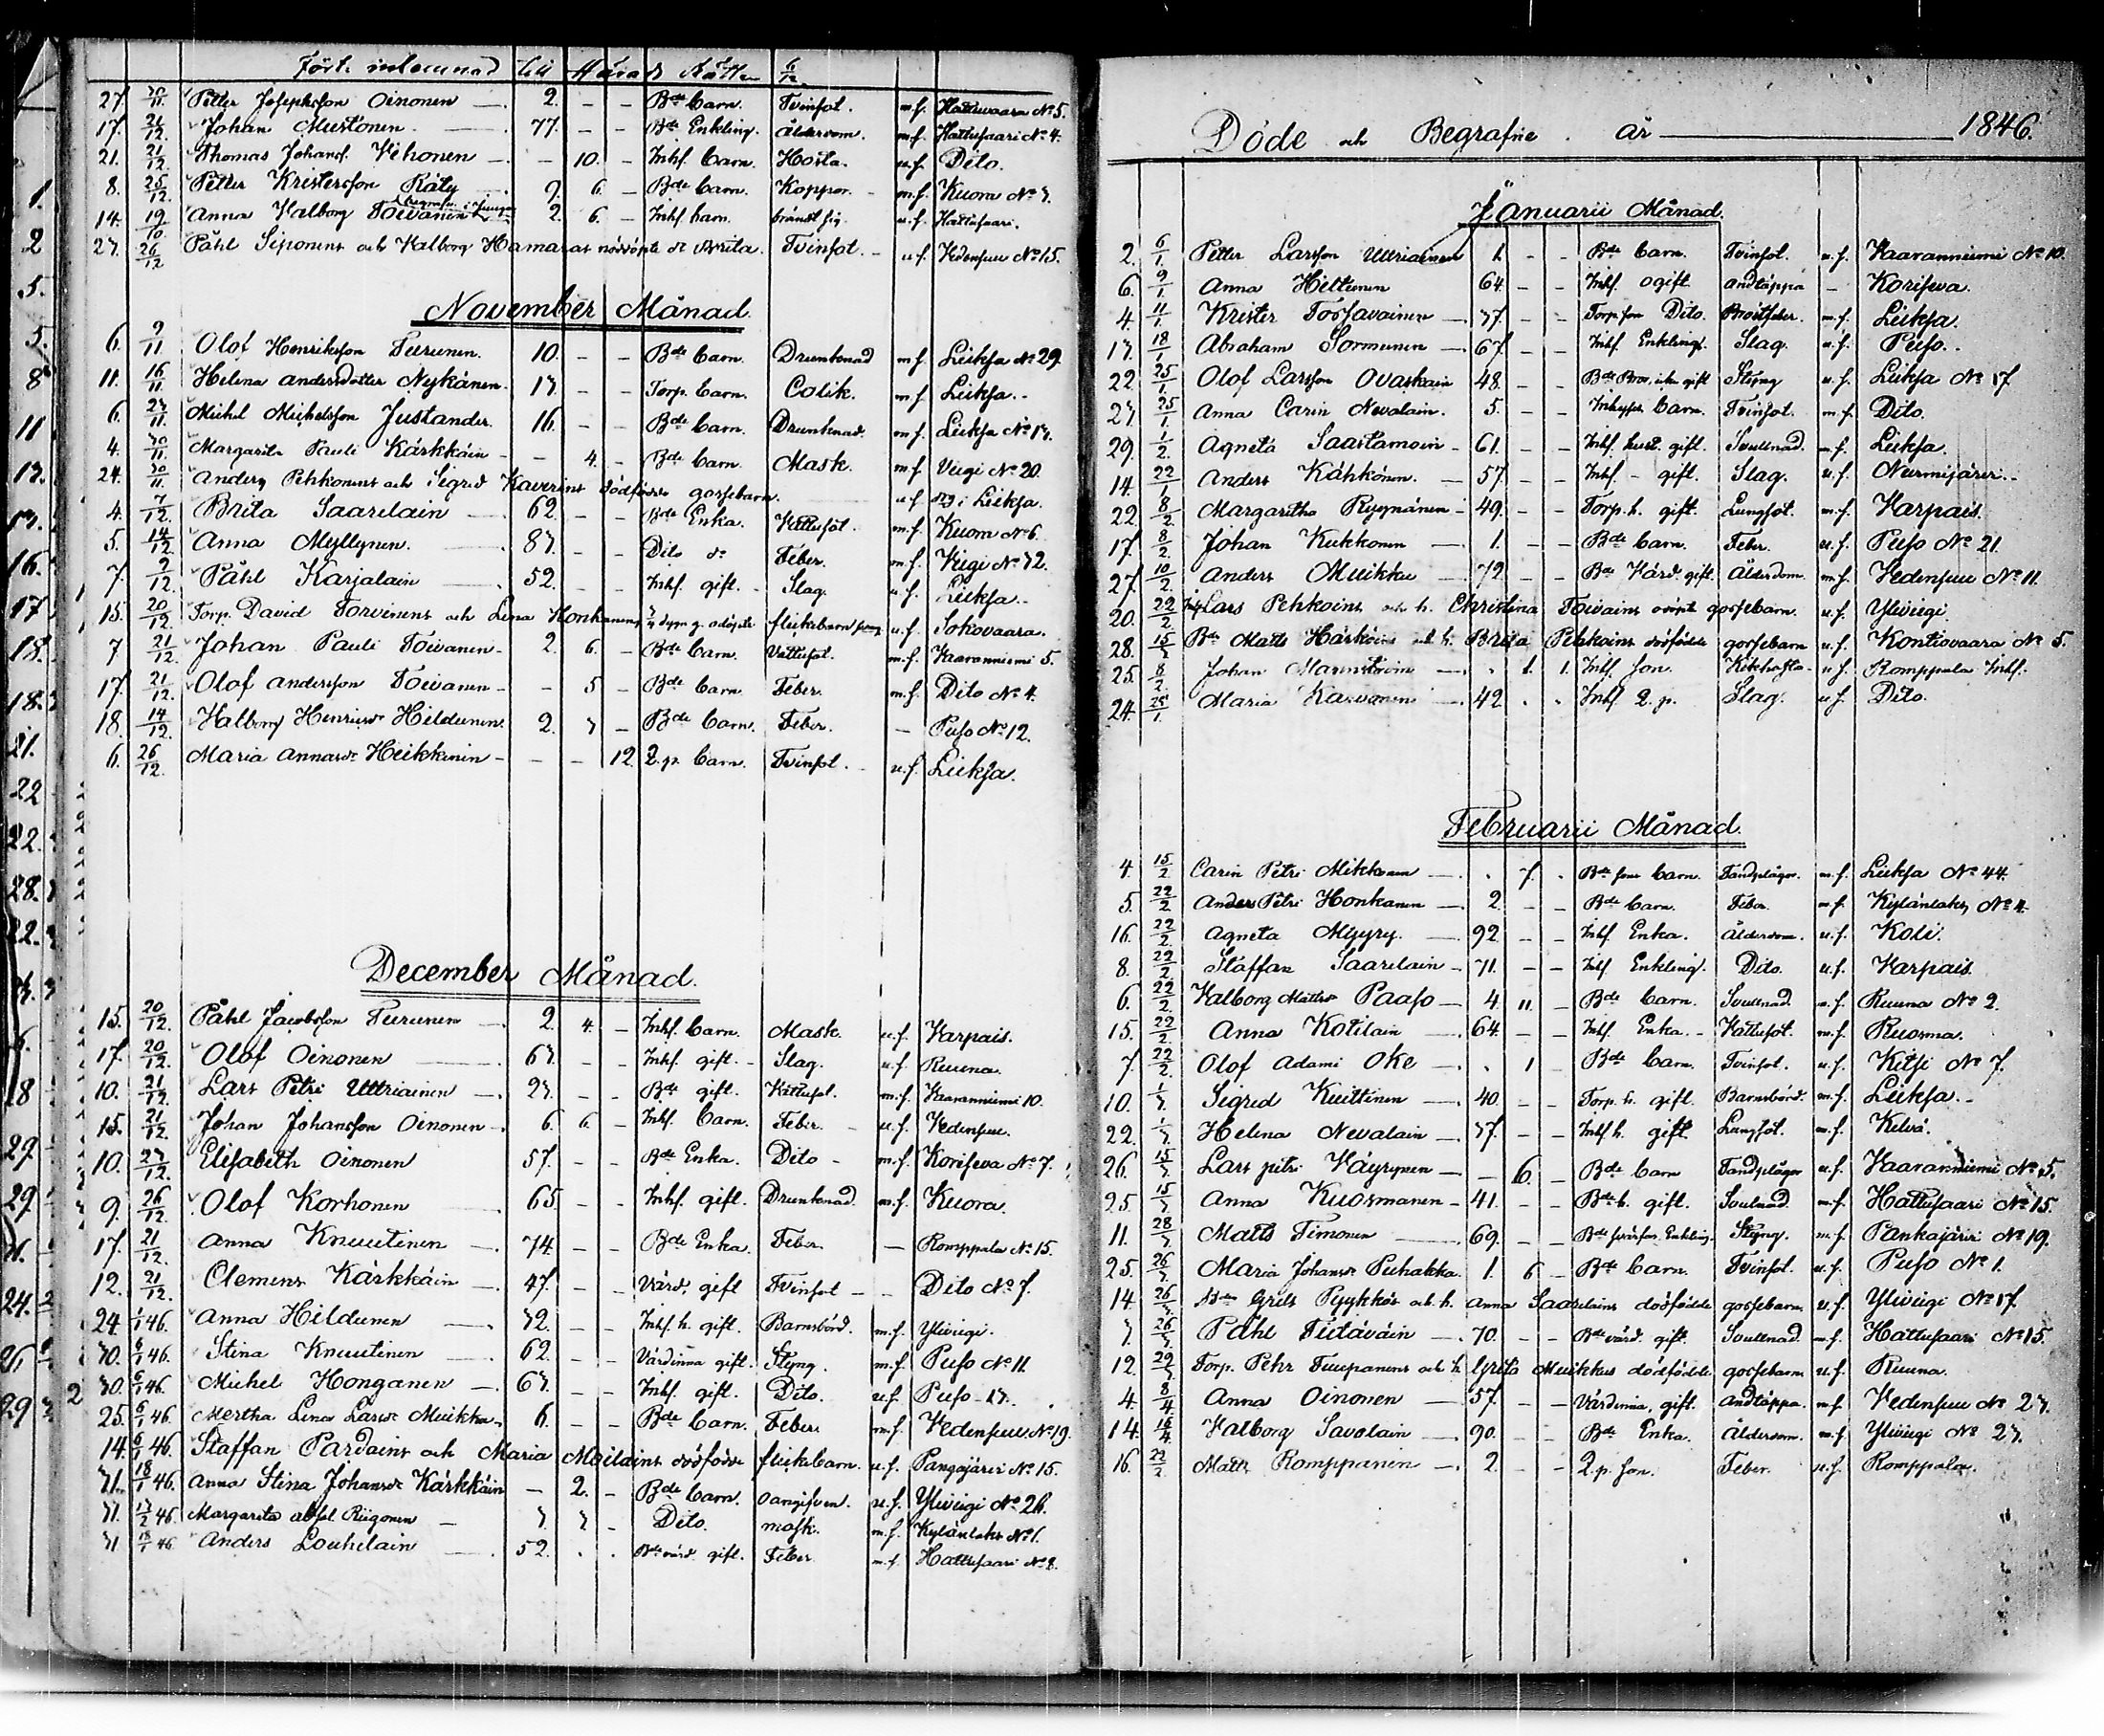 Fört. inlemnad till Härads Rätten 6/12
27. 30/11. Petter Josephsson Oinonen — 2. - - Bde barn. Tvinsot. m.f. Hattuvaara No 5.
17. 21/12. Johan Mustonen. — 77. - - Bde Enkling. Ålderdom. m.f. Hattusaari No 4.
21. 21/12. Thomas Johansf. Vehonen — - 10. - Inhf. barn. Hosta. u.f. Dito.
8. 25/12. Petter Kristersson Räty — 9. 6. - Bde barn. Koppor. - m.f. Kuora No 3.
14. 19/10. Anna Valborg Toivanen 2. 6. - Inhf. barn. bränt sig. u.f. Hattusaari.
23. 26/12 Påhl Siponens och Valborg Hamaras nöddöpte dr Brita. Tvinsot. - u.f. Vedensuu No 15.
November Månad.
6. 9/11 Olof Henriksson Turunen. 10. - - Bde barn. Drunknad m.f. Lieksa No 29.
11. 16/11. Helena andersdotter Nykänen. 13. - - Torp. barn. Colik. m.f. Lieksa. -
6. 23/11. Michel Michelsson Justander. 16. - - Bde barn. Drunknad. m.f. Lieksa No 13.
4. 30/11. Margareta Pauli Kärkkäin - - 4. - Bde barn. Mask. m.f. Viegi No 20.
24. 30/11. Anders Pehkonens och Sigrid Kaverins dödfödde gossebarn. u.f. 29 i Lieksa.
4. 7/12. Brita Saarelain — 62. - - Bde Enka. Vattusot. m.f. Kuora No 6.
5. 14/12. Anna Myllynen. — 83. - - Dito dr Feber. m.f. Viegi No 32.
7. 9/12. Påhl Karjalain — 52. - - Inhf. gift. - Slag. u.f. Lieksa. -
15. 20/12. Torp. David Torvinens och Lena Honkanens odöpte flickebarn u.f. Sokovaara.
7 21/12. Johan Pauli Toivanen - 2. 6. - Bde barn. Vattusot. m.f. Vaaranniemi 5.
17. 21/12. Olof andersson Toivanen - - 5 - Bde barn Feber. m.f. Dito No 4.
18. 14/12. Valborg Henriksdr Hildunen. 2. 3 - Bde barn. Feber. - Puso No 12.
6. 26/12. Maria Annasdr Heikkinen - - - 12. 2. p. barn. Tvinsot. - u.f. Lieksa.
December Månad.
15. 20/12. Påhl Jacobsson Turunen — 2. 4. - Inhf. barn. Mask. u.f. Karpais.
17. 20/12. Olof Oinonen — 63. - - Inhf. gift. - Slag. u.f. Ruuna.
10. 21/12. Lars Petri Uttriainen — 23. - - Bde gift. Vattusot. m.f. Vaaranniemi 10.
15. 21/12. Johan Johansson Oinonen - 6. 6. - Inhf. barn. Feber. - u.f. Vedensuu.
10. 27/12. Elisabeth Oinonen 57. - - Bde Enka. Dito - m.f. Koriseva No 7.
9. 26/12. Olof Korhonen — 65 - - Inhf. gift. Drunknad. m.f. Kuora.
17. 21/12. Anna Knuutinen — 74. - - Bde Enka. Feber. — Romppala No 15.
12. 21/12. Clemens Kärkkäin — 47. - - Värd. gift Tvinsot - - Dito No 7.
24. 1/1 46. Anna Hildunen — 32. - - Inhf. h. gift. Barnsbörd. m.f. Ylivieigi.
30. 6/1 46. Stina Knuutinen — 62. - - Värdinna gift. Styng. m.f. Puso No 11.
30. 6/1 46. Michel Honganen — 63. - - Inhf. gift. Dito. u.f. Puso - 13.
25. 6/1 46. Mertha Lena Larsdr Muikku - 6. - - Bde barn. Feber. m.f. Vedensuu No 19.
14. 6/1 46. Staffan Pardains och Maria Moilains dödfödde flickebarn. u.f. Pangajärvi No 15.
31. 18/1 46. Anna Stina Johansdr Kärkkäin - 2. - Bde barn. oangifven. u.f. Ylivieigi No 26.
31. 13/2 46. Margareta Riigonen — 3. 3 - Dito. mask. m.f. Kylänlaks No 1.
31 18/1 46 Anders Louhelain — 52. . . Bde värd. gift. Feber m.f. Hattusaari No 8.
Döde och Begrafne. År — 1846.
Januarii Månad.
2. 6/1. Petter Larsson Uttriainen 1. - - Bde barn. Tvinsot. u.f. Vaaranniemi No 10.
6. 9/1. Anna Hiltunen 64. - - Inhf. ogift. andtäppa - Koriseva.
4. 11/1. Krister Torsavainen — 37. - - Torp. son Dito. Bröstfeber. m.f. Lieksa.
13. 18/1 Abraham Sormunen — 67. - - Inhf. Enkling. Slag. u.f. Puso. -
22 25/1. Olof Larsson Ovaskain 48. - - Bde Bror. gift Styng u.f. Lieksa No 17
23. 25/1. Anna Carin Nevalain. 5. - - Inhyses barn. Tvinsot. m.f. Dito.
29. 1/2. Agneta Saastamoin - 61. - - Inhf. hust. gift. Svullnad. m.f. Lieksa.
14. 22/1 Anders Kähkönen. — 57. - - Inhf. - gift. Slag. u.f. Nurmijärvi. -
22. 8/2 Margaretha Ryynänen - 49. - - Torp. h. gift. Lungsot. m.f. Karpais.
17. 8/2. Johan Kukkonen — 1. - - Bde barn. Feber. u.f. Puso No 21.
27. 10/2. Anders Muikku — 72 - - Bde Värd. gift. Ålderdom. m.f. Vedensuu No 11.
20. 22/2. Lars Pehkoins och h. Christina Toivains odöpte gossebarn. u.f. Ylivieigi.
28. 15/3 Bde Matts Härköins och h. Brita Pehkoins dödfödde gossebarn u.f. Kontiovaara No 5.
25. 8/2. Johan Marnitsoin — . 1. 1. Inhf. son. Kikhosta - u.f. Romppala Inhf.
24. 25/1. Maria Karvonen — 42 . . Inhf 2. p. Slag. u.f. Dito.
Februarii Månad.
4. 15/2 Carin Petri Mikkonen — . 7. . Bde sons barn. Tandplågor. m.f. Lieksa No 44.
5. 22/2 Anders Petri Honkanen — 2. - - Bde barn. Feber. m.f. Kylänlaks No 4.
16. 22/2 Agneta Myyry. — 92. - - Inhf. Enka. Ålderdom. u.f. Koli.
8. 22/2. Staffan Saarelain - 71. - - Inhf. Enkling. Dito. u.f. Karpais.
6. 22/2 Valborg Mattsdr Paaso — 4. 11. - Bde barn. Svullnad. u.f. Ruuna No 2.
15. 22/2 Anna Kotilain — 64. - - Inhf. Enka. - Vattusot. m.f. Ruosma.
7. 22/2. Olof Adami Oke — . 1 - Bde barn. Tvinsot. u.f. Kitsi No 7.
10. 1/3. Sigrid Kuittinen — 40. - - Torp. h. gift. Barnsbörd. m.f. Lieksa. -
22. 1/3 Helena Nevalain — 37. - - Inhf. h. gift. Lungsot. m.f. Kelvä.
26. 15/3 Lars petri Väyrynen — - 6. - Bde barn Tandplågor u.f. Vaaranniemi No 5.
25. 15/3 Anna Kuosmanen - 41. - - Bde h. gift. Svulnad. m.f. Hattusaari No 15.
11. 28/3 Matts Timonen — 69. - - Bde svärfar Enkling. Styng. m.f. Pankajärvi No 19.
25. 26/3 Maria Johansdr Puhakka. 1. 6 - Bde barn. Tvinsot. u.f. Puso No 1.
14. 26/3. Bde Grels Pyykkös och h. Anna Saarelains dödfödde gossebarn u.f. Ylivieigi No 17.
3 26/3. Påhl Tiitäväin — 70. - - Bde värd. gift. Svullnad. m.f. Hattusaari No 15.
12. 29/3 Torp. Pehr Tuupanens och h. Greta Muikkus dödfödde gossebarn u.f. Ruuna.
4. 8/4 Anna Oinonen — 57. - - Värdinna, gift. andtäppa. m.f. Vedensuu No 23.
14. 16/4. Valborg Savolain — 90. - - Bde Enka. Ålderdom. m.f. Ylivieigi No 23.
16. 22/2. Matts Romppanen — 2. - - 2. p. son. Feber. u.f. Romppala.